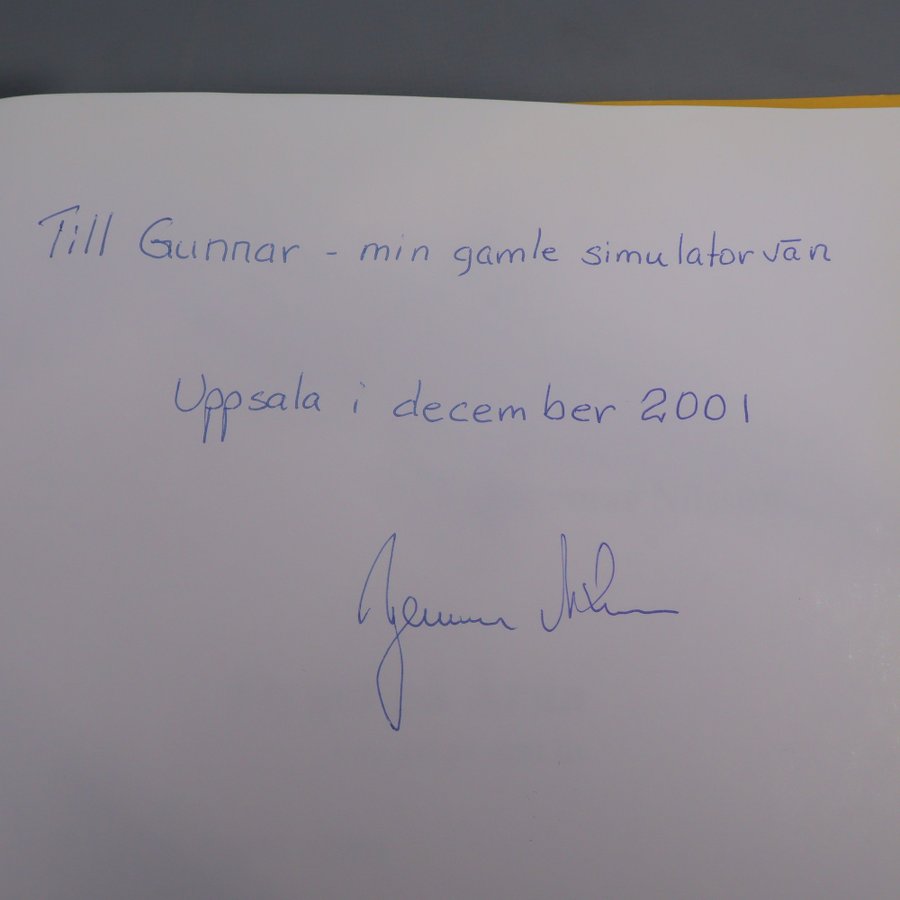 Till Gunnar - min gamle simulatorvän
Uppsala i december 2001